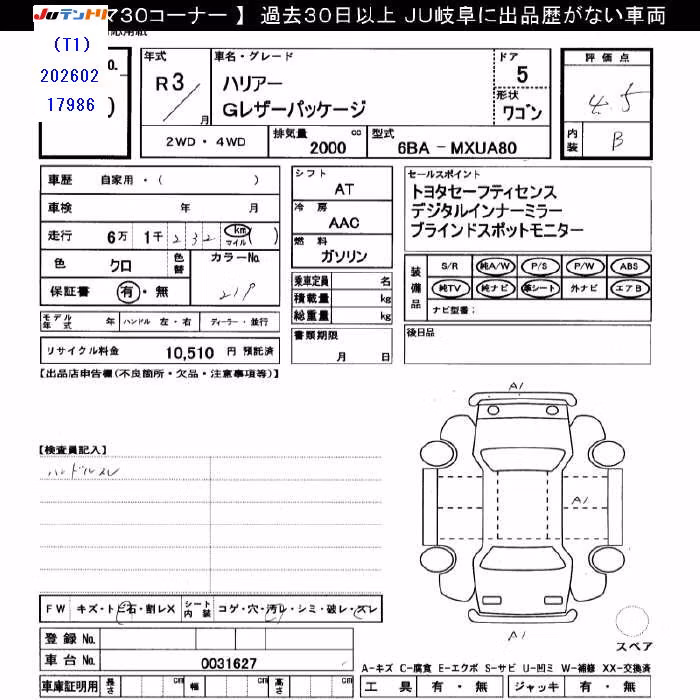 JUテントリ 730コーナー 】 過去30日以上 JU岐阜に出品歴がない車両
(T1)
202602
17986
o.
)
年式
R3/
月
車名・グレード
ハリアー
Gレザーパッケージ
ドア
5
形状
ワゴン
評価点
4.5
内装
B
2WD・4WD
排気量
2000
cc
型式
6BA-MXUA80
車歴 自家用・( )
車検 年 月
走行 6万 1千 232 km マイル ( )
色 クロ 色替 カラーNo.
保証書 有・無 219
モデル年式 年 ハンドル 左・右 ディーラー・並行
リサイクル料金 10,510 円 預託済
シフト
AT
冷房
AAC
燃料
ガソリン
乗車定員 名
積載量 kg
総重量 kg
書類期限
月 日
セールスポイント
トヨタセーフティセンス
デジタルインナーミラー
ブラインドスポットモニター
装備品
S/R 純A/W P/S P/W ABS
純TV 純ナビ 革シート 外ナビ エアB
ナビ型番:
後日品
【出品店申告欄(不良箇所・欠品・注意事項等)】
【検査員記入】
ハンドルスレ
A1
A1
A1
スペア
FW キズ・ト 石・割レX シート内装 コゲ・穴・汚レ・シミ・破レ・スレ
登録 No.
車台 No. 0031627
車庫証明用 長さ cm 幅 cm 高さ cm
A-キズ C-腐食 E-エクボ S-サビ U-凹ミ W-補修 XX-交換済
工具 有・無 ジャッキ 有・無